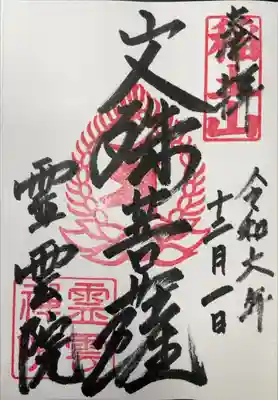 奉拝
令和六年
十二月一日
文殊菩薩
霊雲院